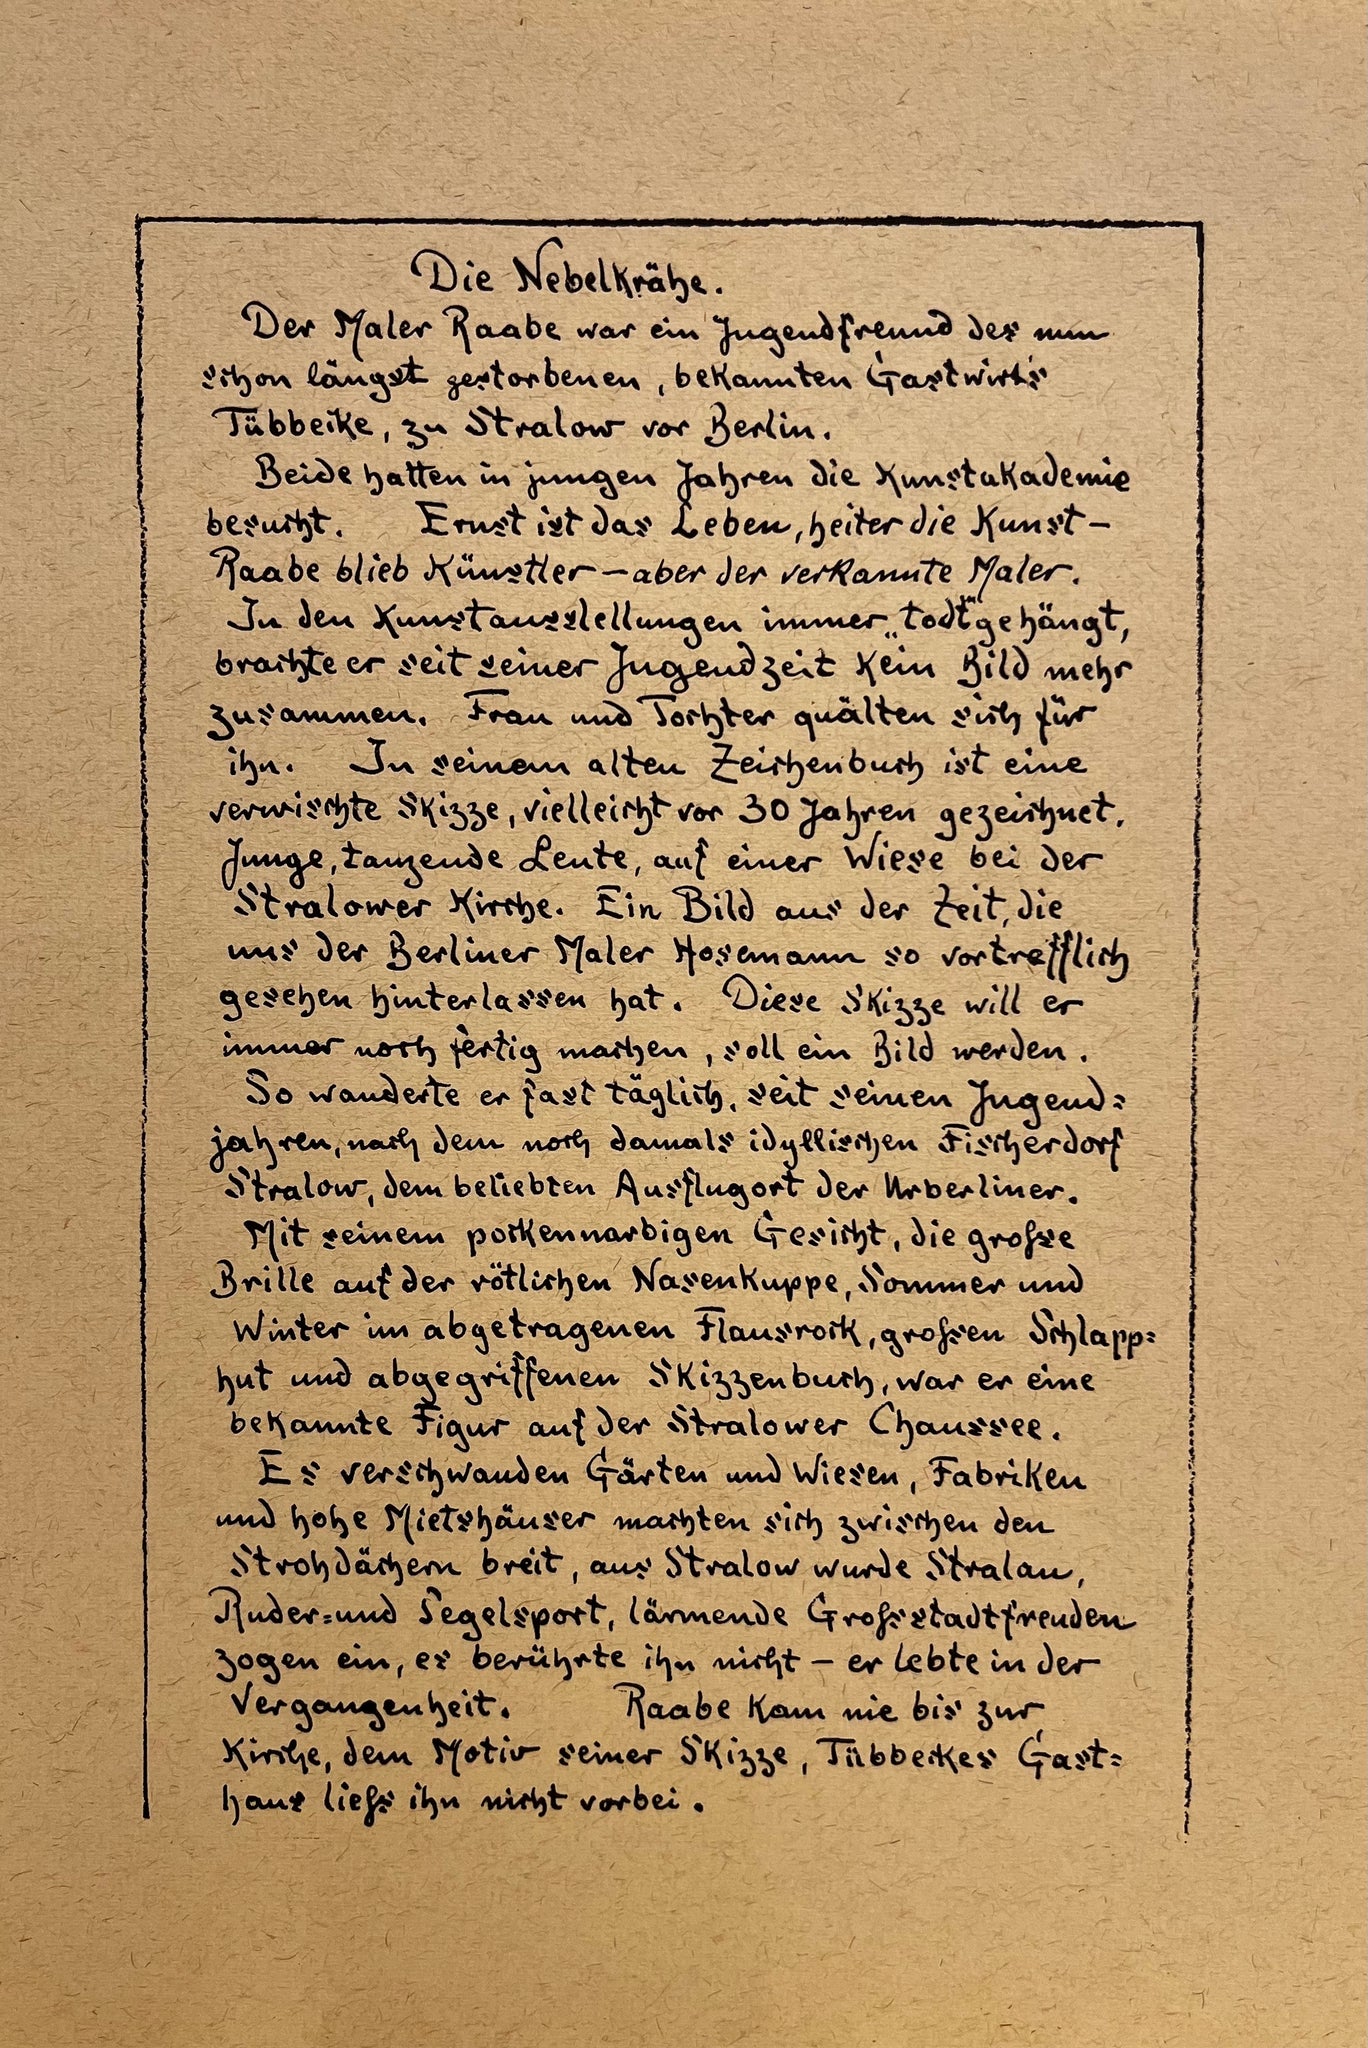 Die Nebelkrähe.
Der Maler Raabe war ein Jugendfreund des nun
schon längst gestorbenen, bekannten Gastwirts
Tübbecke, zu Stralow vor Berlin.
Beide hatten in jungen Jahren die Kunstakademie
besucht. Ernst ist das Leben, heiter die Kunst —
Raabe blieb Künstler — aber der verkannte Maler.
In den Kunstausstellungen immer „todt“ gehängt,
brachte er seit seiner Jugendzeit kein Bild mehr
zusammen. Frau und Tochter quälten sich für
ihn. In seinem alten Zeichenbuch ist eine
verwischte Skizze, vielleicht vor 30 Jahren gezeichnet.
Junge, tanzende Leute, auf einer Wiese bei der
Stralower Kirche. Ein Bild aus der Zeit, die
uns der Berliner Maler Hosemann so vortrefflich
gesehen hinterlassen hat. Diese Skizze will er
immer noch fertig machen, soll ein Bild werden.
So wanderte er fast täglich, seit seinen Jugend=
jahren, nach dem noch damals idyllischen Fischerdorf
Stralow, dem beliebten Ausflugort der Urberliner.
Mit seinem pockennarbigen Gesicht, die grosse
Brille auf der rötlichen Nasenkuppe, Sommer und
Winter im abgetragenen Flausrock, grossen Schlapp=
hut und abgegriffenen Skizzenbuch, war er eine
bekannte Figur auf der Stralower Chaussee.
Es verschwanden Gärten und Wiesen, Fabriken
und hohe Mietshäuser machten sich zwischen den
Strohdächern breit, aus Stralow wurde Stralau,
Ruder= und Segelsport, lärmende Grossstadtfreuden
zogen ein, es berührte ihn nicht — er lebte in der
Vergangenheit. Raabe kam nie bis zur
Kirche, dem Motiv seiner Skizze, Tübbeckes Gast=
haus liess ihn nicht vorbei.